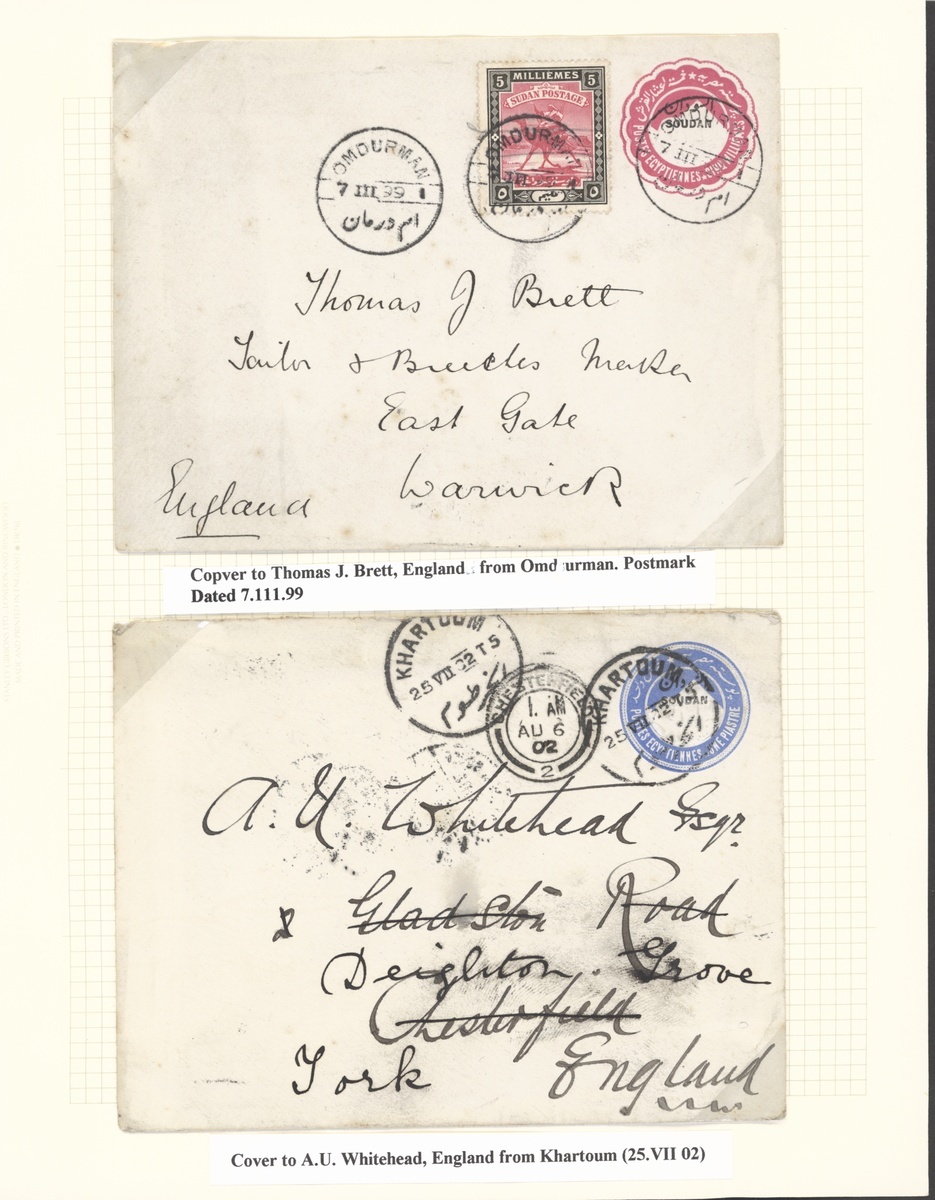 5 MILLIÈMES 5
SUDAN POSTAGE
SOUDAN
POSTES EGYPTIENNES
OMDURMAN
7 III 99 1
ام درمان
OMDURMAN
III
OMDUR
7 III
ام
Thomas J Brett
Tailor & Breeches Maker
East Gate
Warwick
England
Copver to Thomas J. Brett, England from Omdurman. Postmark
Dated 7.111.99
KHARTOUM
25 VII 02 T5
الخرطوم
CHESTERFIELD
1. AM
AU 6
02
2
KHARTOUM
25 VII 02
SOUDAN
POSTES EGYPTIENNES UNE PIASTRE
A. U. Whitehead Esqr.
Gladston Road
Deighton. Grove
Chesterfield
York England
Cover to A.U. Whitehead, England from Khartoum (25.VII 02)